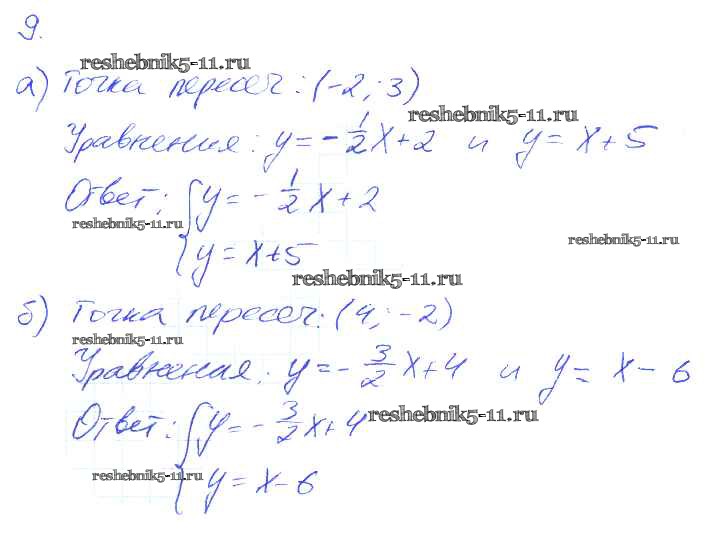 9.
reshebnik5-11.ru
а) Точка пересеч: (-2; 3)
reshebnik5-11.ru
Уравнения: y = -1/2x+2 и y = x+5
Ответ: { y = -1/2x+2
reshebnik5-11.ru
reshebnik5-11.ru
y = x+5
reshebnik5-11.ru
б) Точка пересеч: (4; -2)
reshebnik5-11.ru
Уравнения: y = -3/2x+4 и y = x-6
Ответ: { y = -3/2x+4
reshebnik5-11.ru
reshebnik5-11.ru
y = x-6